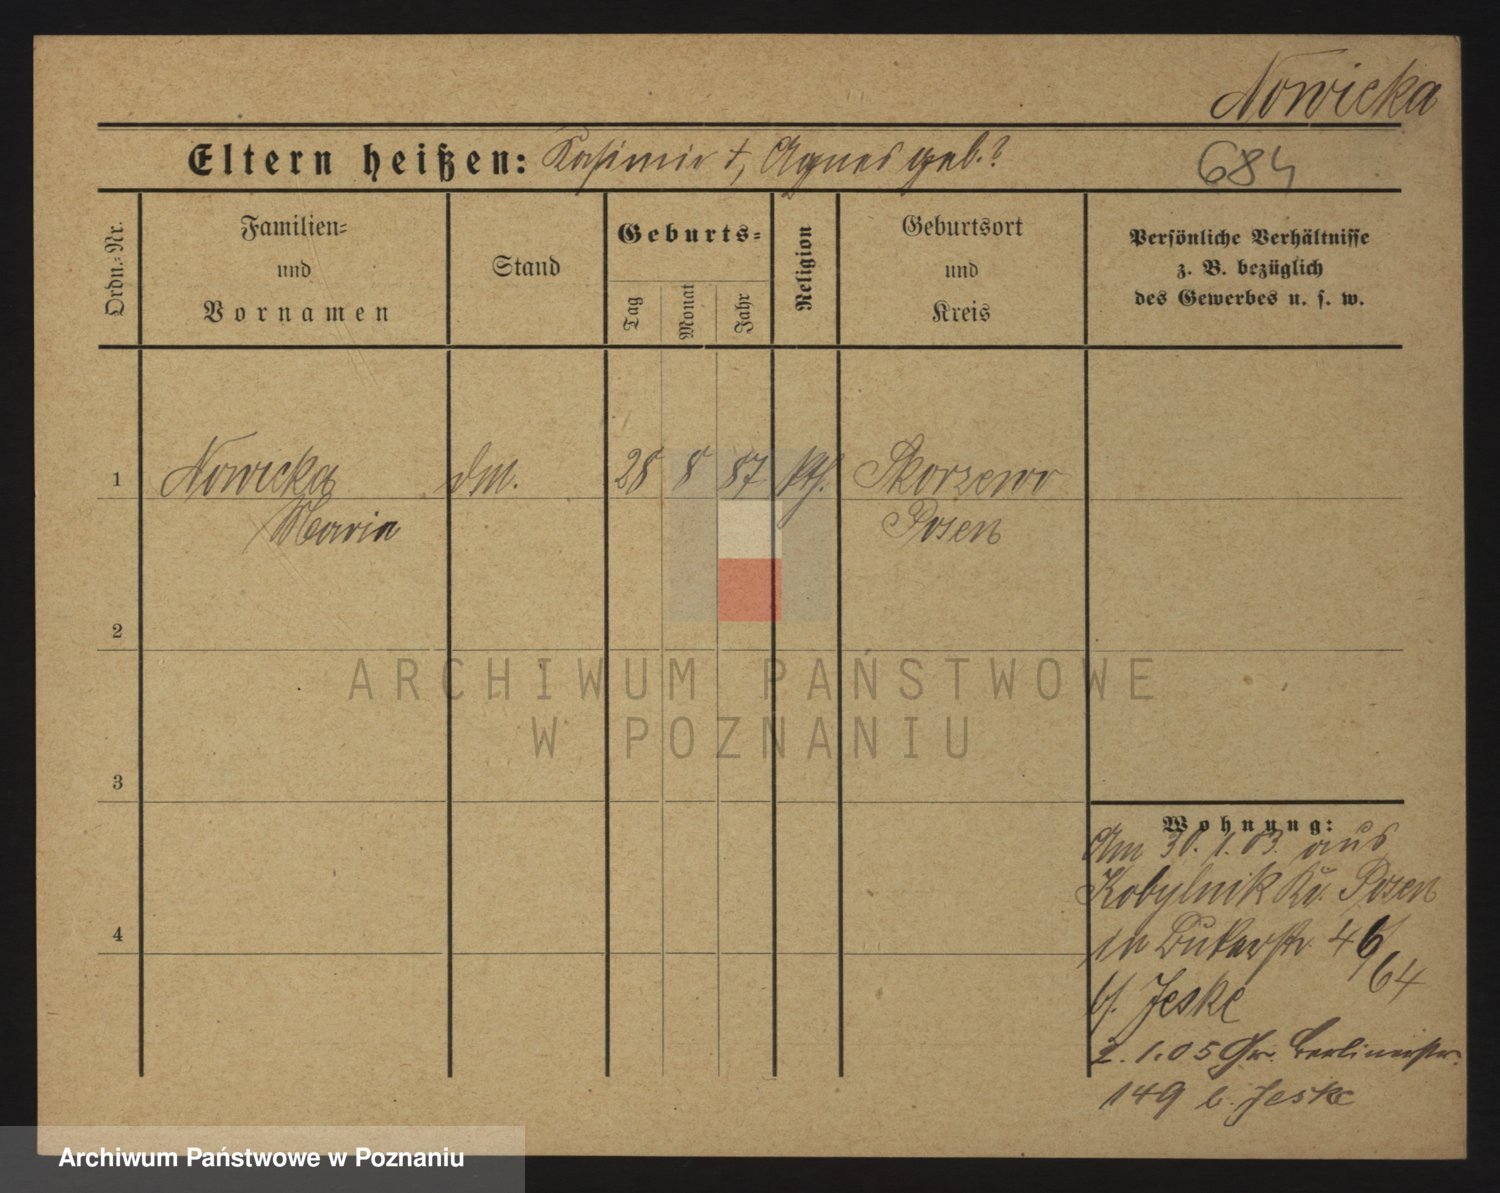 Nowicka
Eltern heißen: Kasimir †, Agnes geb.?
684
Ordn.=Nr.
Familien=
und
Vornamen
Stand
Geburts=
Tag
Monat
Jahr
Religion
Geburtsort
und
Kreis
Persönliche Verhältnisse
z. B. bezüglich
des Gewerbes u. s. w.
1 Nowicka dm. 28 8 87 kth. Skorzewo
Maria Posen
2
3
4
Wohnung:
Am 30.1.03. aus
Kobylnik Kr. Posen
in Bukerstr. 46/64
bei Jeske
2.1.05 Gr. Berlinerstr.
149 b. Jeske
ARCHIWUM PAŃSTWOWE
W POZNANIU
Archiwum Państwowe w Poznaniu